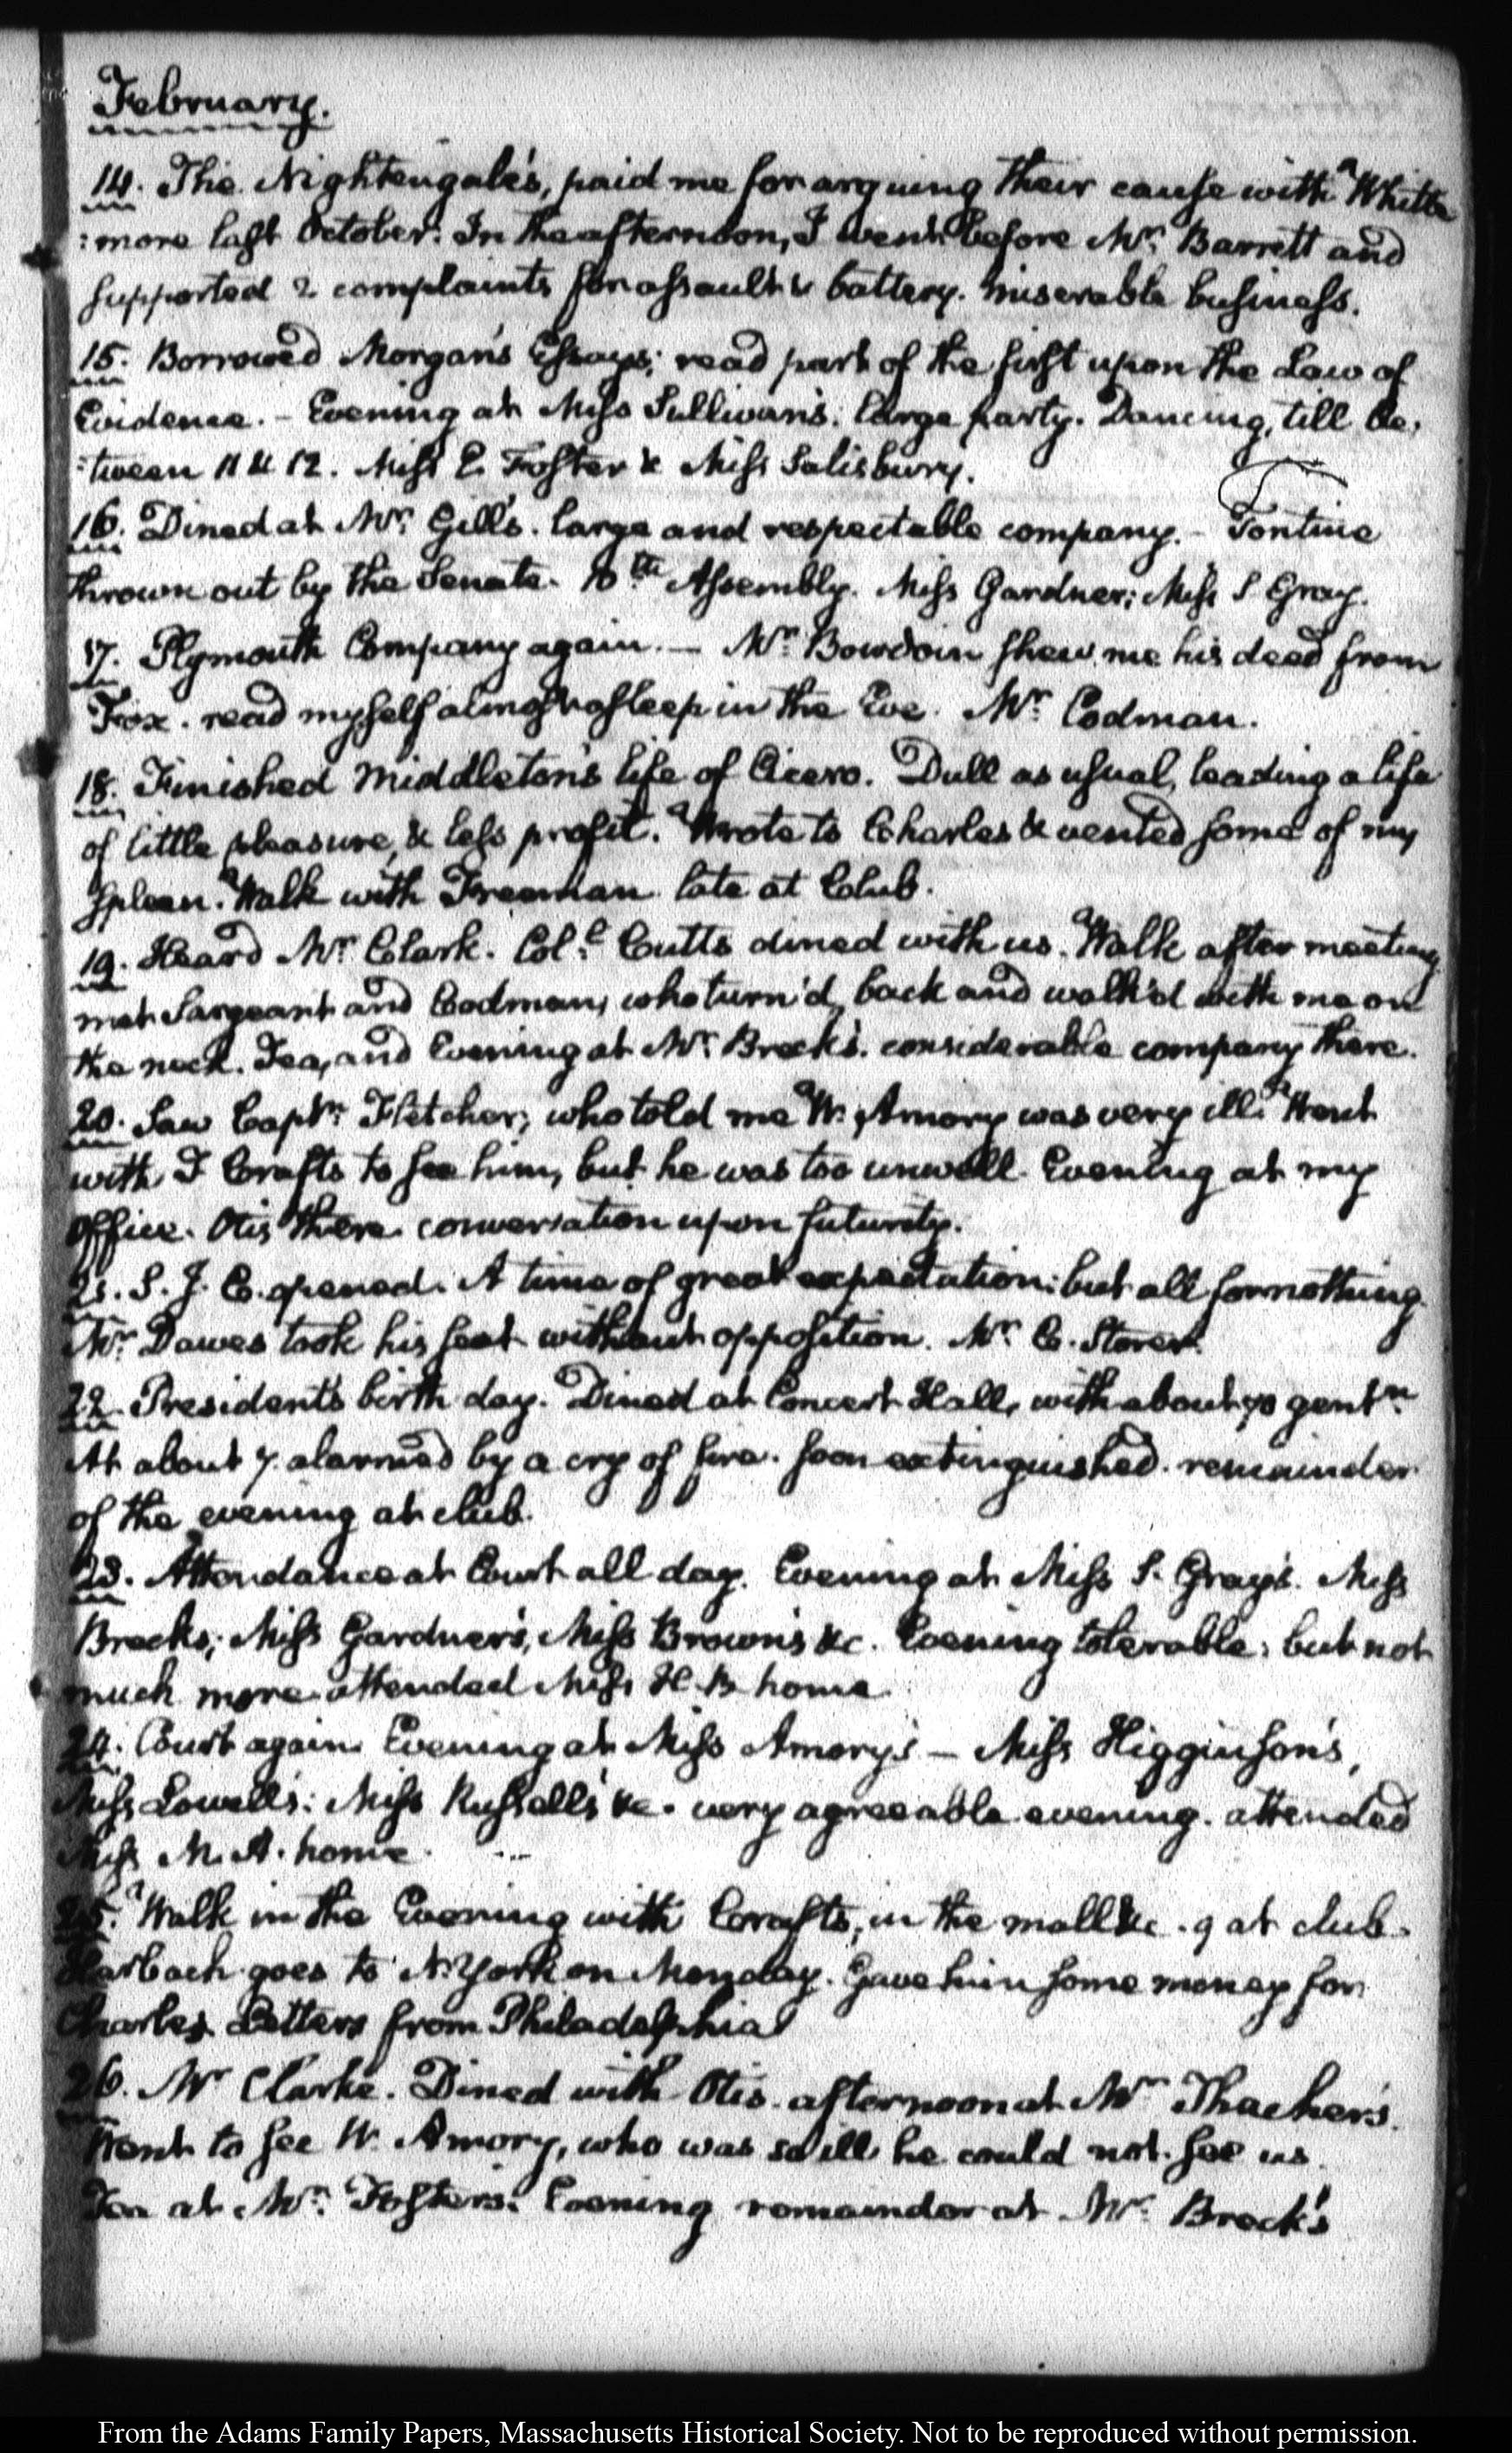 February.
14. The Nightengale's, paid me for arguing their cause with Whitte
:more last October. In the afternoon, I went before Mr. Barrett and
supported 2 complaints for assault & battery. miserable business.
15. Borrowed Morgan's Essays; read part of the first upon the Law of
Evidence. – Evening at Miss Sullivan's. large party. Dancing, till be:
:tween 11 & 12. Miss E. Foster & Miss Salisbury.
16. Dined at Mr. Gill's. large and respectable company. – Tontine
thrown out by the Senate. 10th Assembly. Miss Gardner; Miss S Gray.
17. Plymouth Company again. – Mr. Bowdoin shew me his deed from
Fox. read myself almost asleep in the Eve. Mr. Codman.
18. Finished Middleton's life of Cicero. Dull as usual, leading a life
of little pleasure, & less profit. Wrote to Charles & vented some of my
spleen. Walk with Freeman. late at Club.
19. Heard Mr. Clark. Col. Cutts dined with us. Walk after meeting
met Sargeant and Codman, who turn'd back and walk'd with me on
the neck. Tea, and Evening at Mr. Breck's. considerable company there.
20. Saw Captn. Fletcher, who told me W. Amory was very ill. Went
with T Crafts to see him, but he was too unwell. Evening at my
office. Otis there. conversation upon futurity.
21. S. J. C. opened. A time of great expectation: but all for nothing
Mr. Dawes took his seat without opposition. Mr. C. Storer.
22. President's birth day. Dined at Concert Hall, with about 70 gentn.
At about 7. alarmed by a cry of fire. soon extinguished. remainder
of the evening at club.
23. Attendance at Court all day. Evening at Miss S. Gray's. Miss
Brecks; Miss Gardner's, Miss Brown's &c. Evening tolerable; but not
much more. attended Miss H B home
24. Court again. Evening at Miss Amory's – Miss Higginson's,
Miss Lowell's: Miss Russell's &c. very agreeable evening. attended
Miss M. A. home.
25. Walk in the Evening with Crafts, in the mall &c. 9 at club.
Harbach goes to N. York on Monday. Gave him some money for
Charles. Letters from Philadelphia
26. Mr Clarke. Dined with Otis. afternoon at Mr. Thacher's.
Went to see W. Amory, who was so ill he could not see us.
Tea at Mr. Foster's. Evening remainder at Mr. Breck's
From the Adams Family Papers, Massachusetts Historical Society. Not to be reproduced without permission.